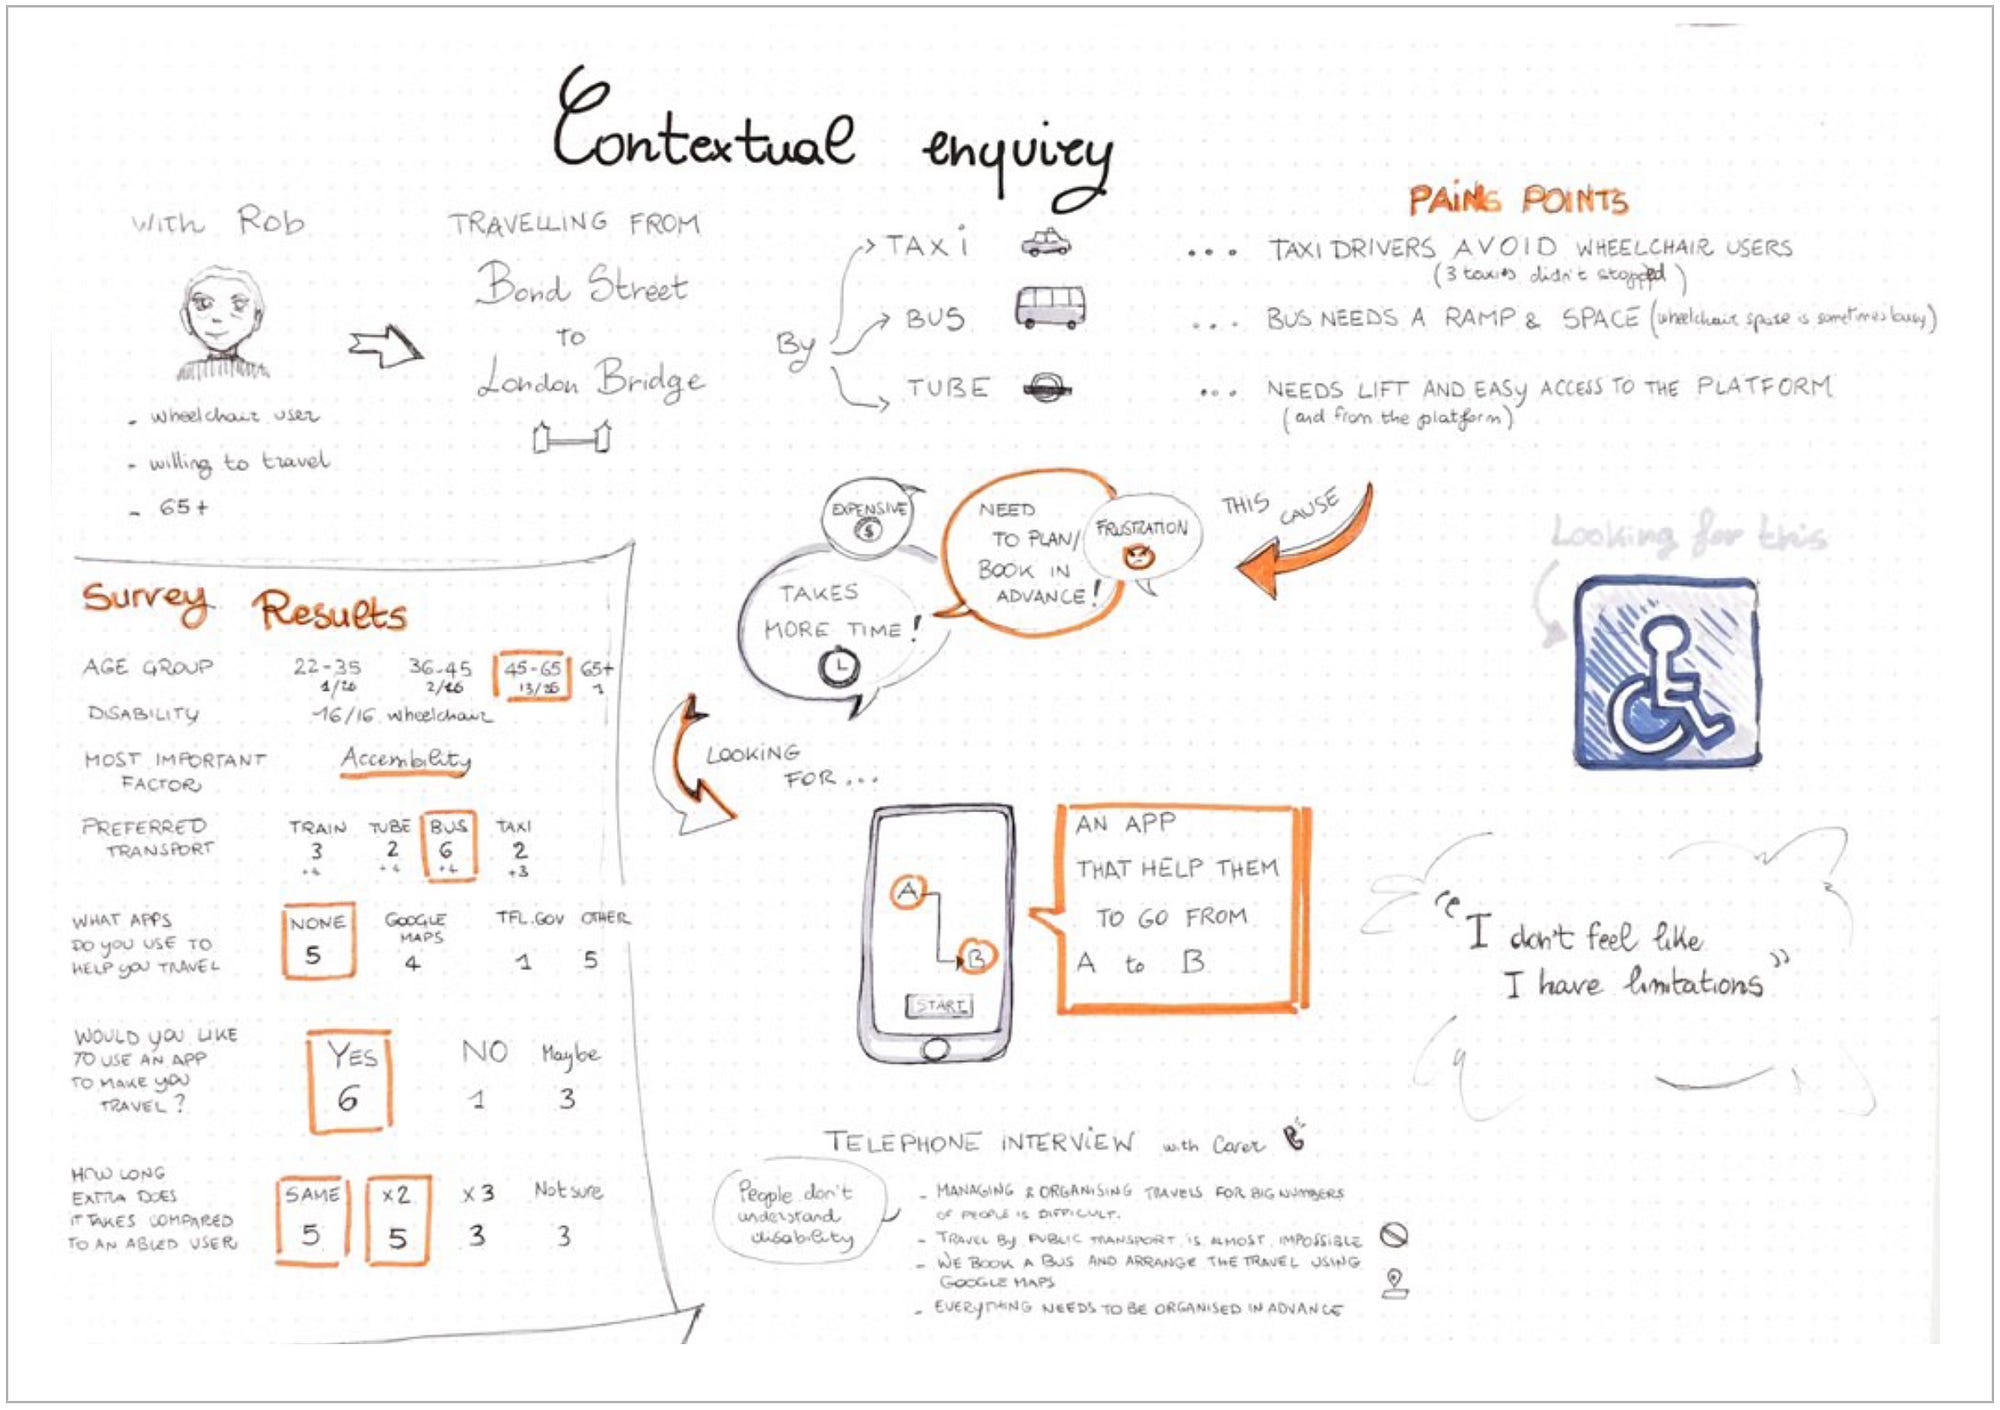 Contextual enquiry
With Rob
- wheelchair user
- willing to travel
- 65+
TRAVELLING FROM
Bond Street
to
London Bridge
By
TAXI
BUS
TUBE
PAING POINTS
... TAXI DRIVERS AVOID WHEELCHAIR USERS
(3 taxis didn't stopped)
... BUS NEEDS A RAMP & SPACE (wheelchair space is sometimes busy)
... NEEDS LIFT AND EASY ACCESS TO THE PLATFORM
(and from the platform)
THIS CAUSE
FRUSTRATION
NEED
TO PLAN/
BOOK IN
ADVANCE!
EXPENSIVE
$
TAKES
MORE TIME!
Looking for this
LOOKING
FOR...
A
B
START
AN APP
THAT HELP THEM
TO GO FROM
A to B
"I don't feel like
I have limitations"
Survey Results
AGE GROUP 22-35 36-45 45-65 65+
2/16 13/16 1
DISABILITY 16/16 wheelchair
MOST IMPORTANT
FACTOR
Accembility
PREFERRED
TRANSPORT
TRAIN TUBE BUS TAXI
3 2 6 2
+4 +4 +4 +3
WHAT APPS
DO YOU USE TO
HELP YOU TRAVEL
NONE GOOGLE MAPS TFL.GOV OTHER
5 4 1 5
WOULD YOU LIKE
TO USE AN APP
TO MAKE YOU
TRAVEL?
YES NO Maybe
6 1 3
HOW LONG
EXTRA DOES
IT TAKES COMPARED
TO AN ABLED USER
SAME x2 x3 Not sure
5 5 3 3
TELEPHONE INTERVIEW with Carer
People don't
understand
disability
- MANAGING & ORGANISING TRAVELS FOR BIG NUMBERS
OF PEOPLE IS DIFFICULT.
- TRAVEL BY PUBLIC TRANSPORT IS ALMOST IMPOSSIBLE
- WE BOOK A BUS AND ARRANGE THE TRAVEL USING
GOOGLE MAPS
- EVERYTHING NEEDS TO BE ORGANISED IN ADVANCE